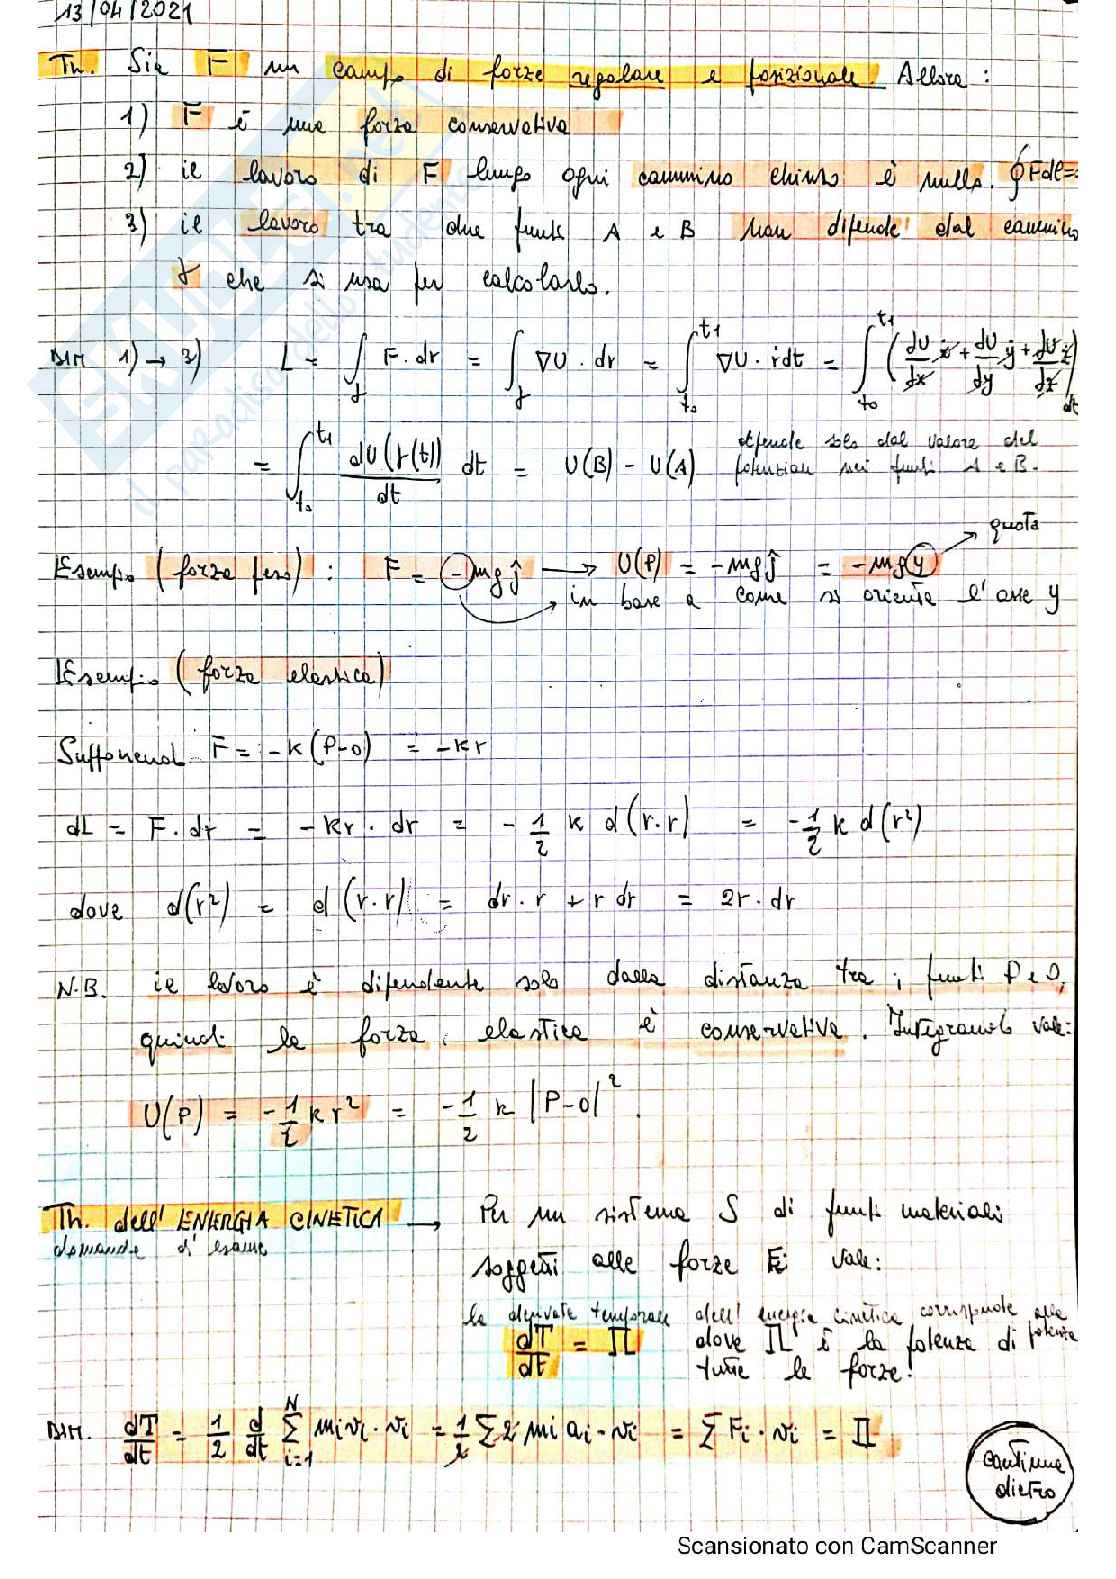 13/04/2021
Th. Sia F un campo di forze regolare e posizionale. Allora :
1) F è una forza conservativa
2) il lavoro di F lungo ogni cammino chiuso è nullo. ∮Fdl=
3) il lavoro tra due punti A e B non dipende dal cammino
γ che si usa per calcolarlo.
DIM 1)→3) L = ∫γ F·dr = ∫γ ∇U·dr = ∫t0^t1 ∇U·ṙdt = ∫t0^t1 (dU/dx ẋ + dU/dy ẏ + dU/dz ż) dt
= ∫t0^t1 dU(r(t))/dt dt = U(B) - U(A) dipende solo dal valore del
potenziale nei punti A e B.
quota
Esempio (forza peso) : F = -mgĵ → U(P) = -mgĵ = -mgy
in base a come si orienta l'asse y
Esempio (forza elastica)
Supponendo F = -k(P-O) = -kr
dL = F·dr = -kr·dr = -1/2 k d(r·r) = -1/2 k d(r²)
dove d(r²) = d(r·r) = dr·r + r dr = 2r·dr
N.B. il lavoro è dipendente solo dalla distanza tra i punti P e O,
quindi la forza elastica è conservativa. Integrando vale:
U(P) = -1/2 kr² = -1/2 k |P-O|².
Th. dell' ENERGIA CINETICA → Per un sistema S di punti materiali
domanda d'esame
soggetti alle forze Fi vale:
la derivata temporale dell'energia cinetica corrisponde alla potenza
dT/dt = Π dove Π è la potenza di
tutte le forze.
DIM. dT/dt = 1/2 d/dt Σ i=1 N mivi·vi = 1/2 Σ 2 mi ai·vi = Σ Fi·vi = Π
continua
dietro
Scansionato con CamScanner